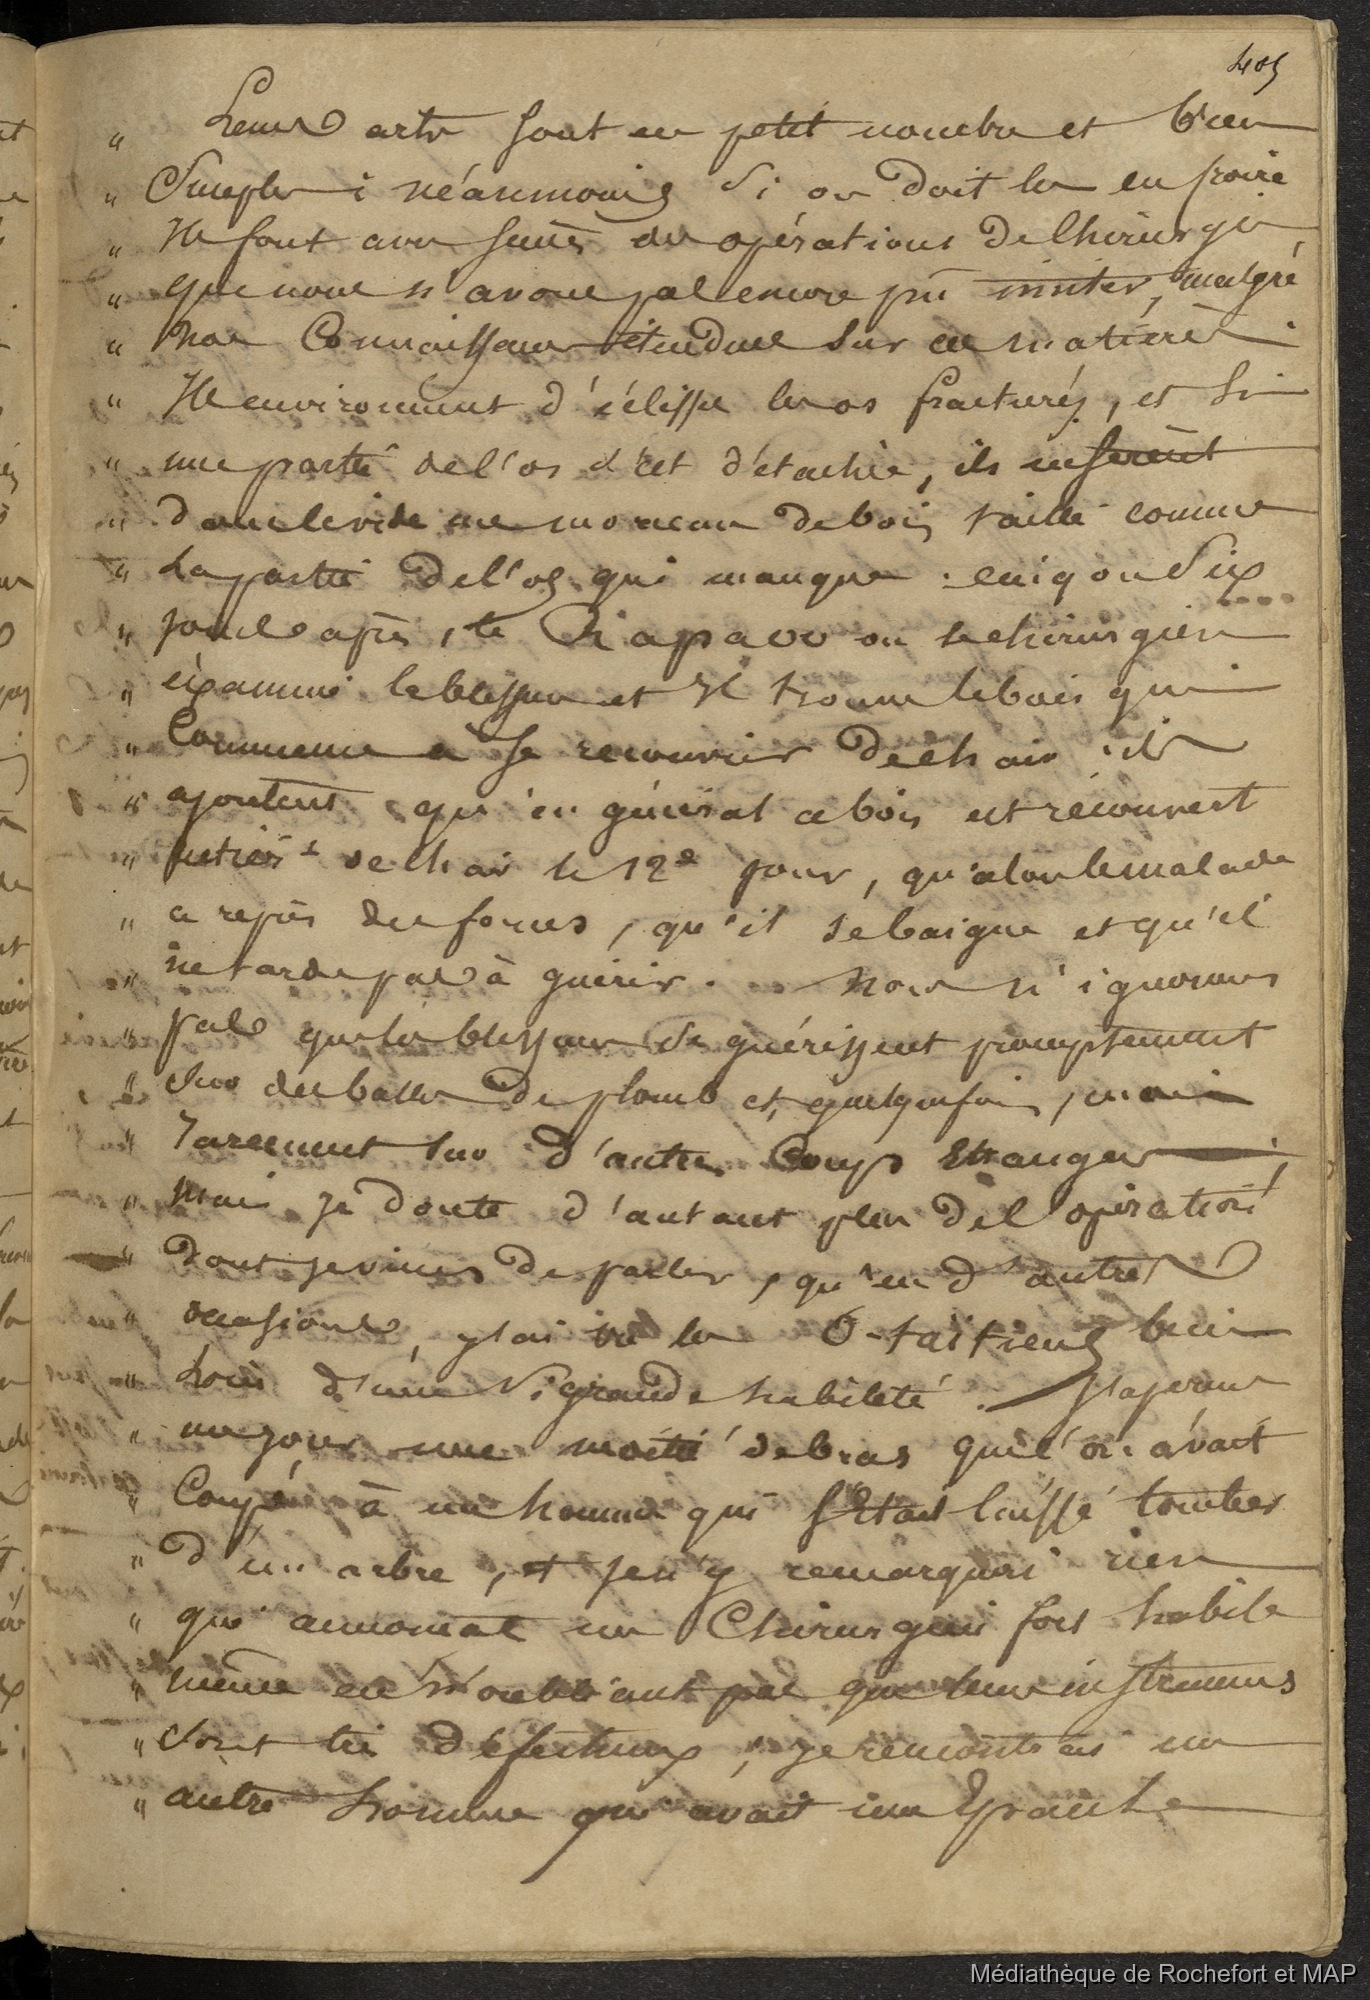 405
" Leurs arts sont en petit nombre et bien
" Simples ; néanmoins Si on doit les en croire
" Ils font avec succès des opérations de Chirurgie,
" que nous n'avons pas encore pu imiter, malgré
" nos Connaissances étendues sur ces matières.
" Ils environnent d'éclisses les os fracturés, et Si
" une partie de l'os s'est détachée, ils insèrent
" dans le vide un morceau de bois taillé comme
" La partie de l'os qui manque : cinq ou Six
" jours après, le Ri apaoo ou le chirurgien
" éxamine la blessure et Il trouve le bois qui
" Commence à se recouvrir de chair ; ils
" ajoutent qu'en général ce bois est recouvert
" entièrt de chair le 12e jour, qu'alors le malade
" a repris des forces, qu'il se baigne et qu'il
" ne tarde pas à guérir. Nous n'ignorons
" pas que les blessures se guérissent promptement
" Sur des balles de plomb et, quelquefois, mais
" rarement sur d'autres Corps Etrangers ;
" Mais je doute d'autant plus de l'opération
" dont je viens de parler, qu'en d'autres
" occasions, j'ai vu les O-taïtiens bien
" Loin d'une Si grande habileté. J'aperçus
" un jour une moitié de bras que l'on avait
" Coupé à un homme qui s'Etait laissé tomber
" d'un arbre, et je n'y remarquai rien
" qui annonçat un Chirurgien fort habile
" même en n'oubliant pas que leurs instrumens
" Sont très défectueux ; je rencontrai un
" autre homme qui avait une Epaule
Médiathèque de Rochefort et MAP